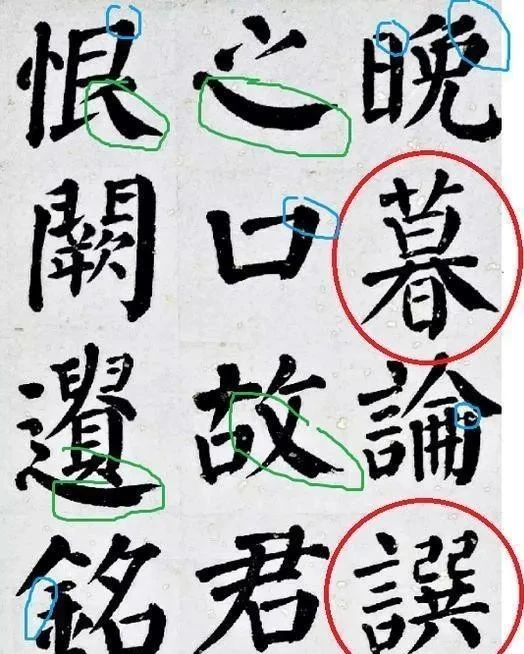 晚暮論譔
之口故君
恨闕遺銘